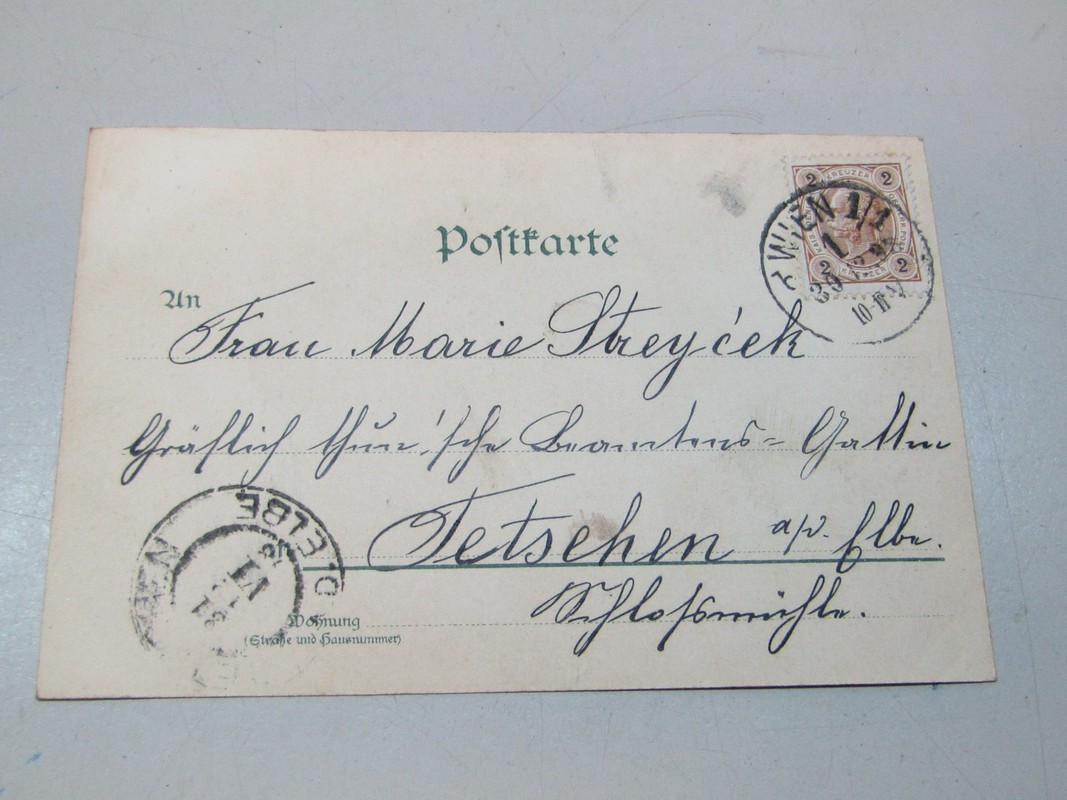 Postkarte
2 KREUZER 2
2 KREUZER 2
WIEN 1/1
1
10-11
An
Frau Marie Streyćek
Gräflich Thun'sche Beamtens-Gattin
Tetschen a/d. Elbe.
Schlossmühle.
ELBE
VI
Wohnung
(Straße und Hausnummer)